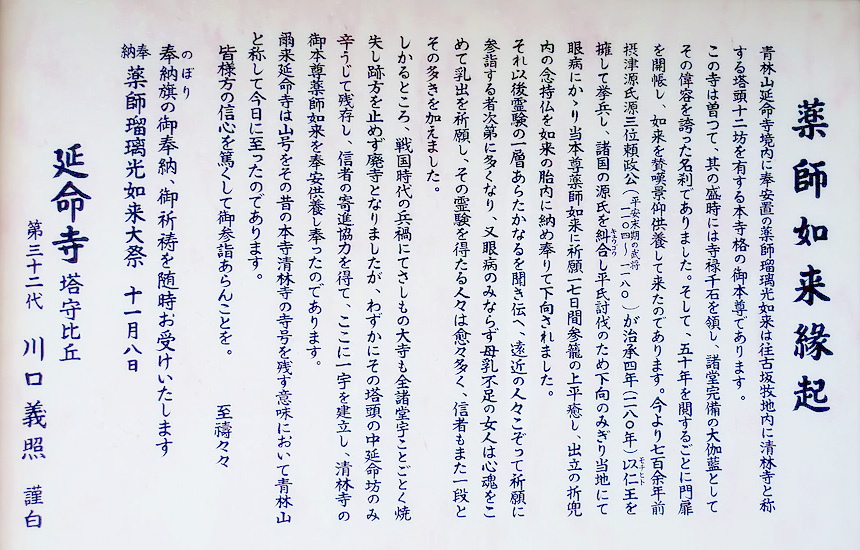 薬師如来縁起
青林山延命寺境内に奉安置の薬師瑠璃光如来は往古坂牧地内に清林寺と称
する塔頭十二坊を有する本寺格の御本尊であります。
この寺は曽つて、其の盛時には寺禄千石を領し、諸堂完備の大伽藍として
その偉容を誇った名刹でありました。そして、五十年を関するごとに門扉
を開帳し、如来を賛嘆景仰供養して来たのであります。今より七百余年前
摂津源氏源三位頼政公(平安末期の武将 一一〇四〜一一八〇)が治承四年(一一八〇年)以仁王を
擁して挙兵し、諸国の源氏を糾合し平氏討伐のため下向のみぎり当地にて
眼病にかゝり当本尊薬師如来に祈願一七日間参籠の上平癒し、出立の折兜
内の念持仏を如来の胎内に納め奉りて下向されました。
それ以後霊験の一層あらたかなるを聞き伝へ、遠近の人々こぞって祈願に
参詣する者次第に多くなり、又眼病のみならず母乳不足の女人は心魂をこ
めて乳出を祈願し、その霊験を得たる人々は愈々多く、信者もまた一段と
その多きを加えました。
しかるところ、戦国時代の兵禍にてさしもの大寺も全諸堂宇ことごとく焼
失し跡方を止めず廃寺となりましたが、わずかにその塔頭の中延命坊のみ
辛うじて残存し、信者の寄進協力を得て、ここに一宇を建立し、清林寺の
御本尊薬師如来を奉安供養し奉ったのであります。
爾来延命寺は山号をその昔の本寺清林寺の寺号を残す意味において青林山
と称して今日に至ったのであります。
皆様方の信心を篤くして御参詣あらんことを。 至祷々々
のぼり
奉納旗の御奉納、御祈祷を随時お受けいたします
奉納 薬師瑠璃光如来大祭 十一月八日
延命寺 塔守比丘
第三十二代 川口義照 謹白